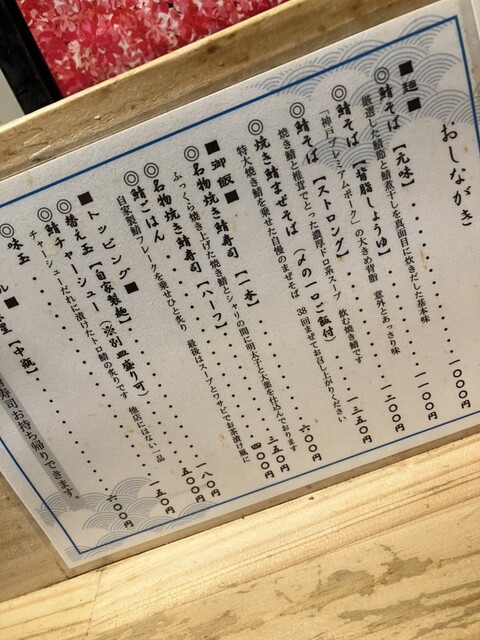 おしながき
■麺■
◎鯖そば【元味】・・・一〇〇〇円
厳選した鯖節と鯖煮干しを真面目に炊きだした基本味
◎鯖そば【背脂しょうゆ】・・・一一〇〇円
「神戸プレミアムポーク」の大きめ背脂 意外とあっさり味
◎鯖そば【ストロング】・・・一二〇〇円
焼き鯖と椎茸でとった濃厚トロ系スープ 飲む焼き鯖です
◎焼き鯖まぜそば（〆の一口ご飯付）・・・一三五〇円
特大焼き鯖を乗せた自慢のまぜそば 38回まぜてお召し上がりください
■御飯■
◎名物焼き鯖寿司【一本】・・・六〇〇円
ふっくら焼き上げた焼き鯖とシャリの間に明太子と大葉を仕込んでおります
◎名物焼き鯖寿司【ハーフ】・・・三五〇円
◎鯖ごはん・・・四〇〇円
自家製鯖フレークを乗せひと炙り 最後はスープとワサビでお茶漬け風に
■トッピング■
◎替え玉【自家製麺】・・・一八〇円
◎鯖チャーシュー（※別皿盛り可）・・・五〇〇円
チャーシューだれに漬けたトロ鯖の炙りです 他店にはない一品
◎味玉・・・一五〇円
【中瓶】・・・六〇〇円
寿司お持ち帰りできます。